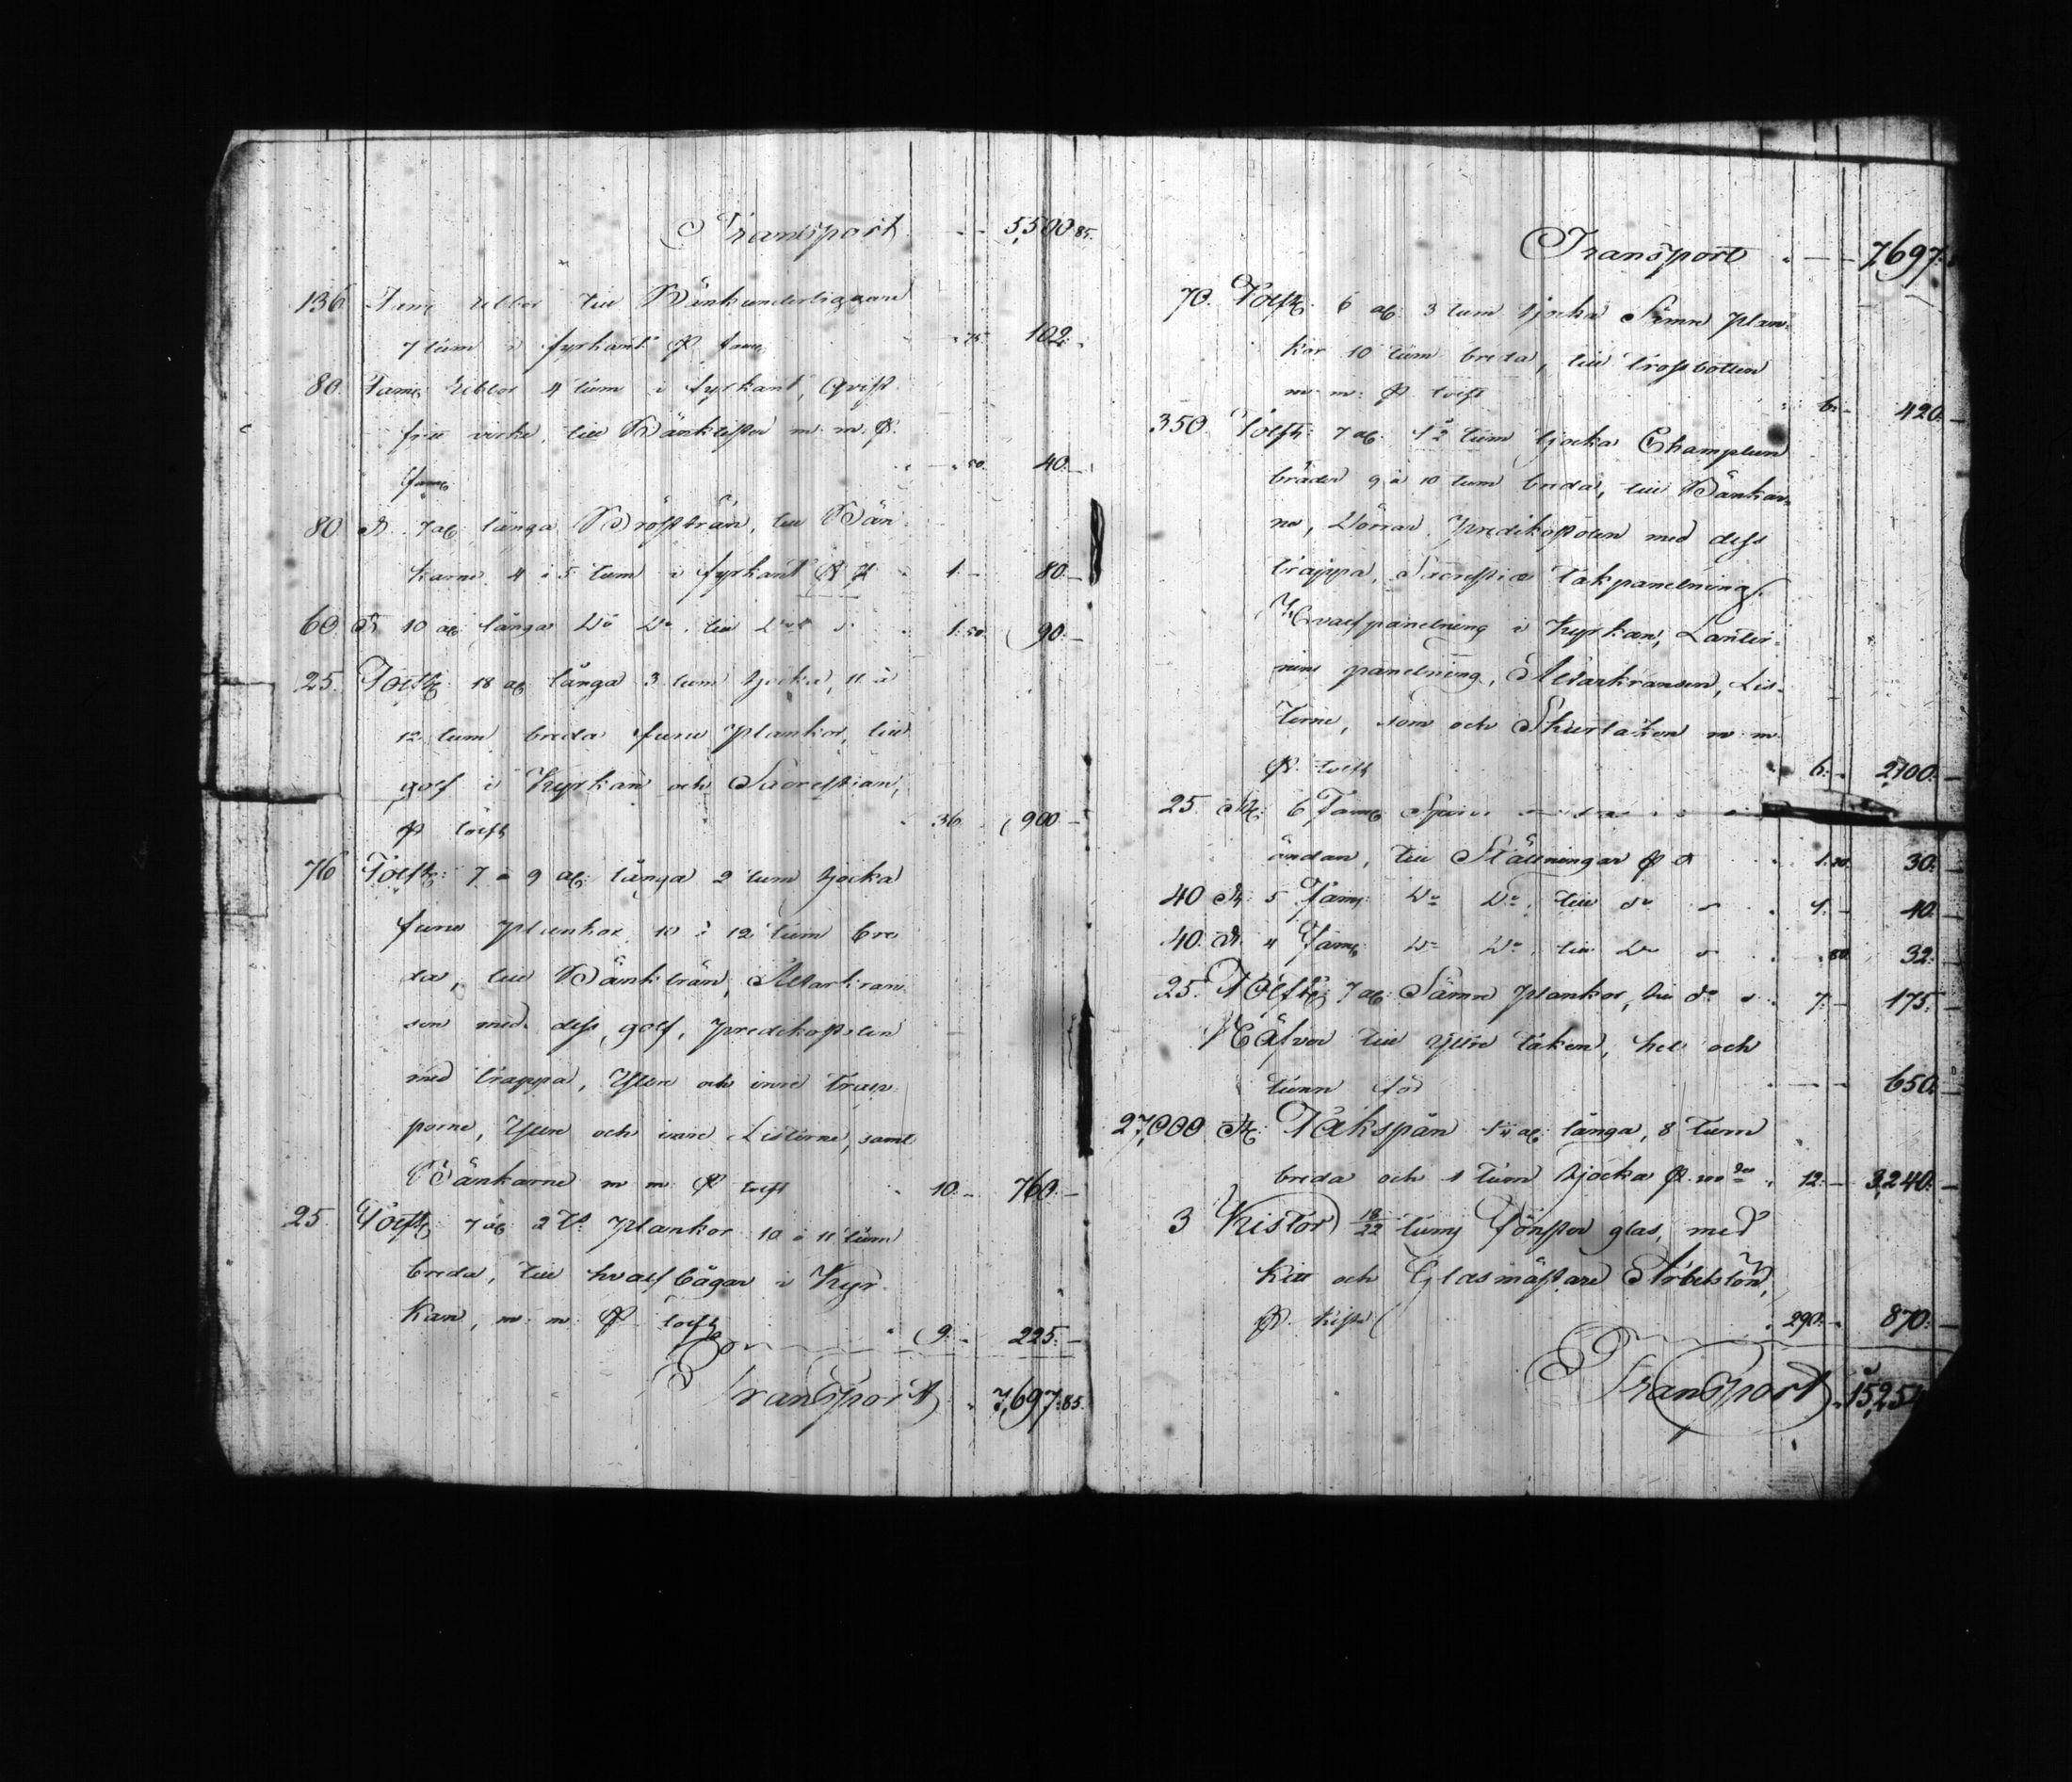 Transport - - 5,500:85.
136 Famn Ribbor till Bänkunderliggare
7 tum i fyrkant pr famn " 75 102: "
80. Famn Ribbor 4 tum i fyrkant, qvist
fritt virke, till Bänklister m. m. pr
famn " 50. 40:-
80 St. 7 al: långa Bröstträn, till Bän
karne 4 à 5 tum i fyrkant pr st 1:- 80:-
60. St 10 al: långa Do Do, till Do 1:50. 90:-
25. Tolft: 18 al långa 3 tum tjocka, 11 à
12 tum breda furu plankor, till
golf i Kyrkan och Sacrestian,
pr tolft 36. 900:-
76 Tolft: 7 à 9 al: långa 2 tum tjocka
furu plankor 10 à 12 tum bre
da, till Bänkträn, Altarkran
sen med dess golf, predikostolen
med trappa, Yttre och inre trap
porne, Yttre och inre Listerne, samt
Bänkarne m m pr tolft 10:- 760:-
25. Tolft: 7 al: 2 t:s plankor 10 à 11 tum
breda, till hvalfbågar i Kyr
kan, m. m. pr tolft 9:- 225:-
Transport 7,697:85.
Transport " - - 7,697:
70. Tolft: 6 al: 3 tum tjocka Sämre plan-
kor 10 tum breda, till trossbotten
m. m. pr tolft 6:- 420:-
350. Tolft: 7 al: 1½ tum tjocka Champlun
bräder 9 à 10 tum breda, till Bänkar-
ne, Dörrar, predikostolen med dess
trappa, Sacrestiæ takpanelning,
Hvalfpanelning i Kyrkan, Lanter-
nins panelning, Altarkransen, Lis-
terne, som och Skurtaken m. m.
pr tolft 6:- 2,100:-
25 St: 6 Famn
ändan, till Ställningar pr st 1:20. 30:-
40 St: 5 Famn Do Do, till do 1:- 40:-
40. St. 4 Famn: Do Do, till Do " 80. 32:-
25. Tolft: 7 al: Sämre plankor, till do 7:- 175:-
Näfver till yttre taken, hel och
tunn för - - 650:-
27,000 St: Takspån 1¼ al: långa, 8 Tum
breda och 1 Tum tjocka pr 100de 12:- 3,240:-
3 Kistor 18/22 tums Fönster glas, med
kitt och Glasmästare Arbetslön,
pr kista 290:- 870:-
Transport 15,254